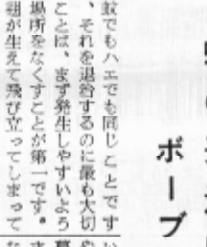 ボーブ
蚊でもハエでも同じことです
、それを退治するのに最も大切
ことは、まず発生しやすいよう
場所をなくすことが第一です。
翅が生えて飛び立ってしまって